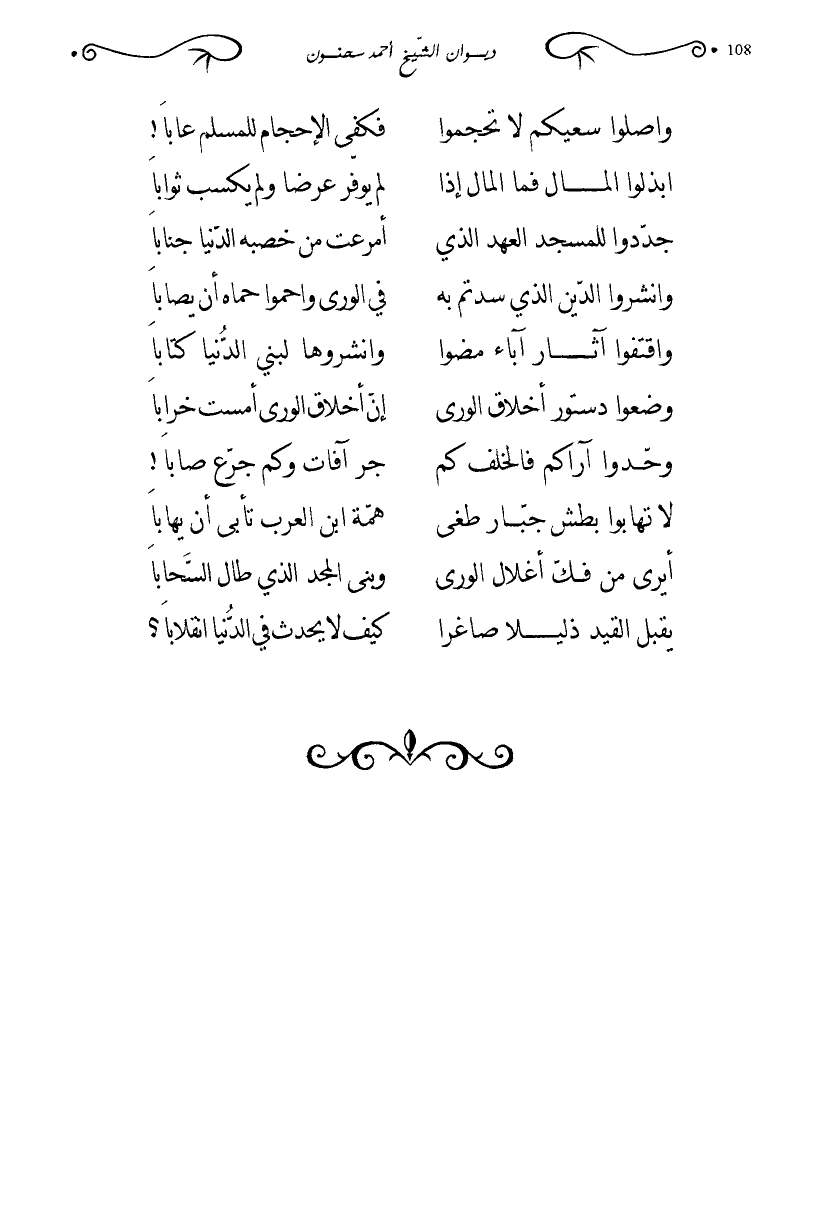 108 ديـوان الشّيخ أحمد سحنـون
واصلوا سعيكم لا تحجموا فكفى الإحجام للمسلم عاباَ !
ابذلوا المـــال فما المال إذا لم يوفّر عرضا ولم يكسب ثواباَ
جدّدوا للمسجد العهد الذي أمرعت من خصبه الدّنيا جناباَ
وانشروا الدّين الذي سدتم به في الورى واحموا حماه أن يصاباَ
واقتفوا آثـــار آباء مضوا وانشروها لبني الدُّنيا كتاباَ
وضعوا دستور أخلاق الورى إنّ أخلاق الورى أمست خراباَ
وحّـدوا آراكم فالخلف كم جر آفات وكم جرّع صاباَ !
لا تهابوا بطش جبّـار طغى همّة ابن العرب تأبى أن يهاباَ
أيرى من فـكّ أغلال الورى وبنى المجد الذي طال السَّحاباَ
يقبل القيد ذليـــلا صاغرا كيف لا يحدث في الدُّنيا انقلاباَ ؟